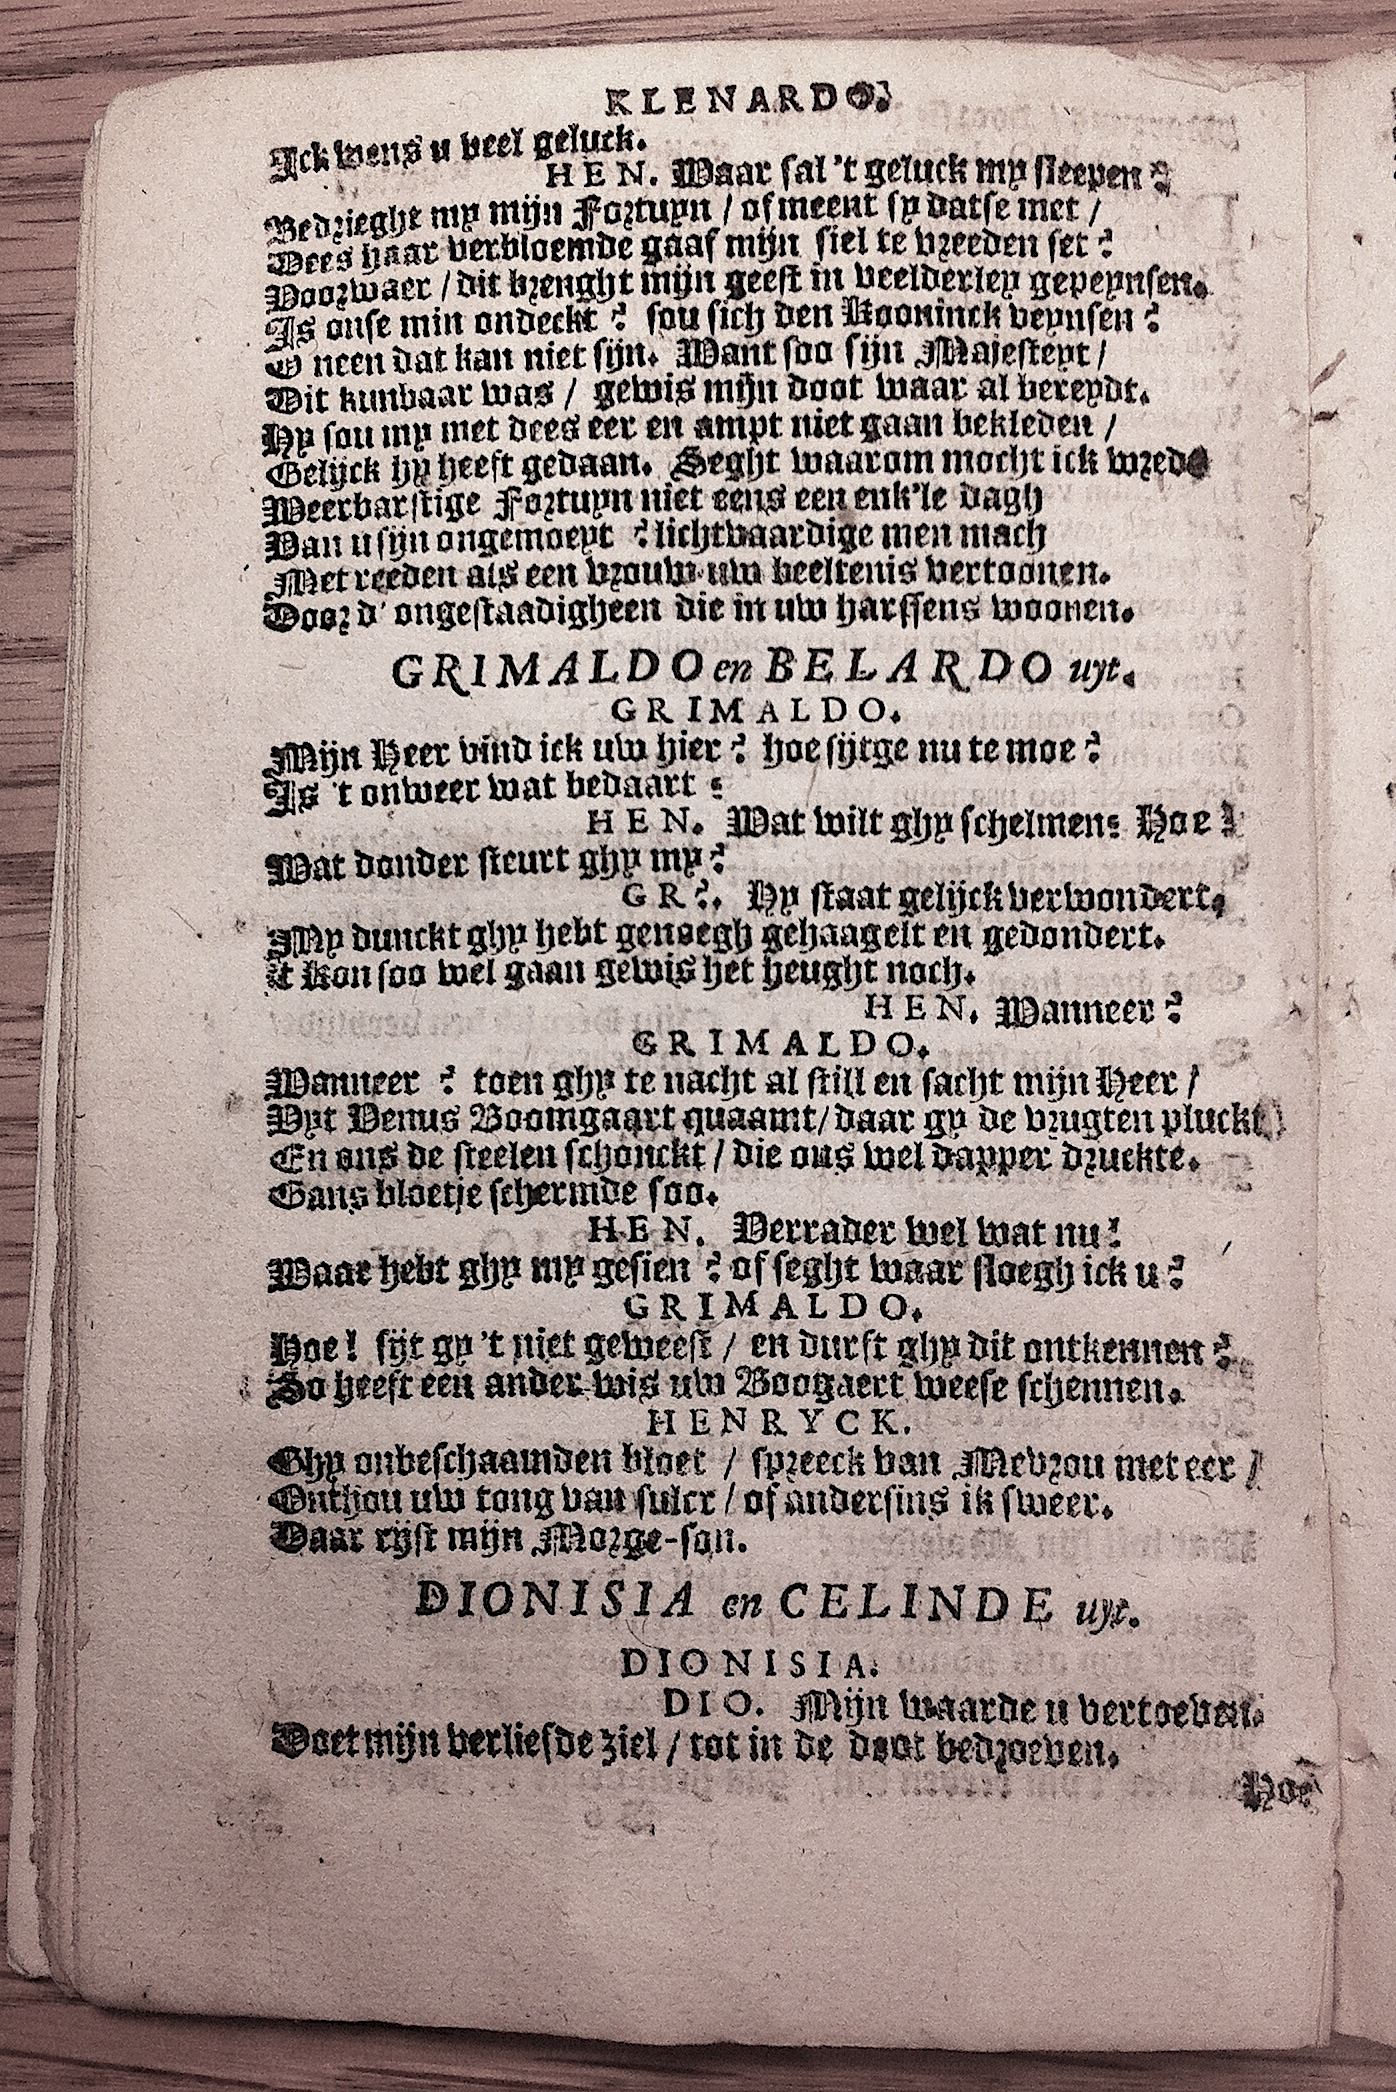 KLENARDO.
Ick wens u veel geluck.
HEN. Waar sal 't geluck my sleepen?
Bedrieght my mijn Fortuyn / of meent sy datse met /
Dees haar verbloemde gaaf mijn siel te vreeden set?
Voorwaer / dit brenght mijn geest in veelderley gepeynsen.
Is onse min ondeckt? sou sich den Kooninck veynsen?
O neen dat kan niet sijn. Want soo sijn Majesteyt /
Dit kunbaar was / gewis mijn doot waar al bereydt.
Hy sou my met dees eer en ampt niet gaan bekleden /
Gelijck hy heeft gedaan. Seght waarom mocht ick wrede
Weerbarstige Fortuyn niet eens een enk'le dagh
Van u sijn ongemoeyt? lichtvaardige men mach
Met reeden als een vrouw uw beeltenis vertoonen.
Door d' ongestaadigheen die in uw harssens woonen.
GRIMALDO en BELARDO uyt.
GRIMALDO.
Mijn Heer vind ick uw hier? hoe sijtge nu te moe?
Is 't onweer wat bedaart?
HEN. Wat wilt ghy schelmen? Hoe!
Wat donder steurt ghy my?
GR?. Hy staat gelijck verwondert,
My dunckt ghy hebt genoegh gehaagelt en gedondert.
't Kon soo wel gaan gewis het heught noch.
HEN. Wanneer?
GRIMALDO.
Wanneer? toen ghy te nacht al still en sacht mijn Heer /
Uyt Venus Boomgaart quaamt / daar gy de vrugten pluckt
En ons de steelen schonckt / die ons wel dapper druckte.
Gans bloetje schermde soo.
HEN. Verrader wel wat nu!
Waar hebt ghy my gesien? of seght waar sloegh ick u?
GRIMALDO.
Hoe! sijt gy 't niet geweest / en durft ghy dit ontkennen?
So heeft een ander wis uw Boogaert weese schennen.
HENRYCK.
Ghy onbeschaamden bloet / spreeck van Mevrou met eer /
Onthou uw tong van sulcr / of andersins ik sweer.
Daar rijst mijn Morge-son.
DIONISIA en CELINDE uyt.
DIONISIA.
DIO. Mijn waarde u vertoeven.
Doet mijn verliefde ziel / tot in de doot bedroeven.
Hoe